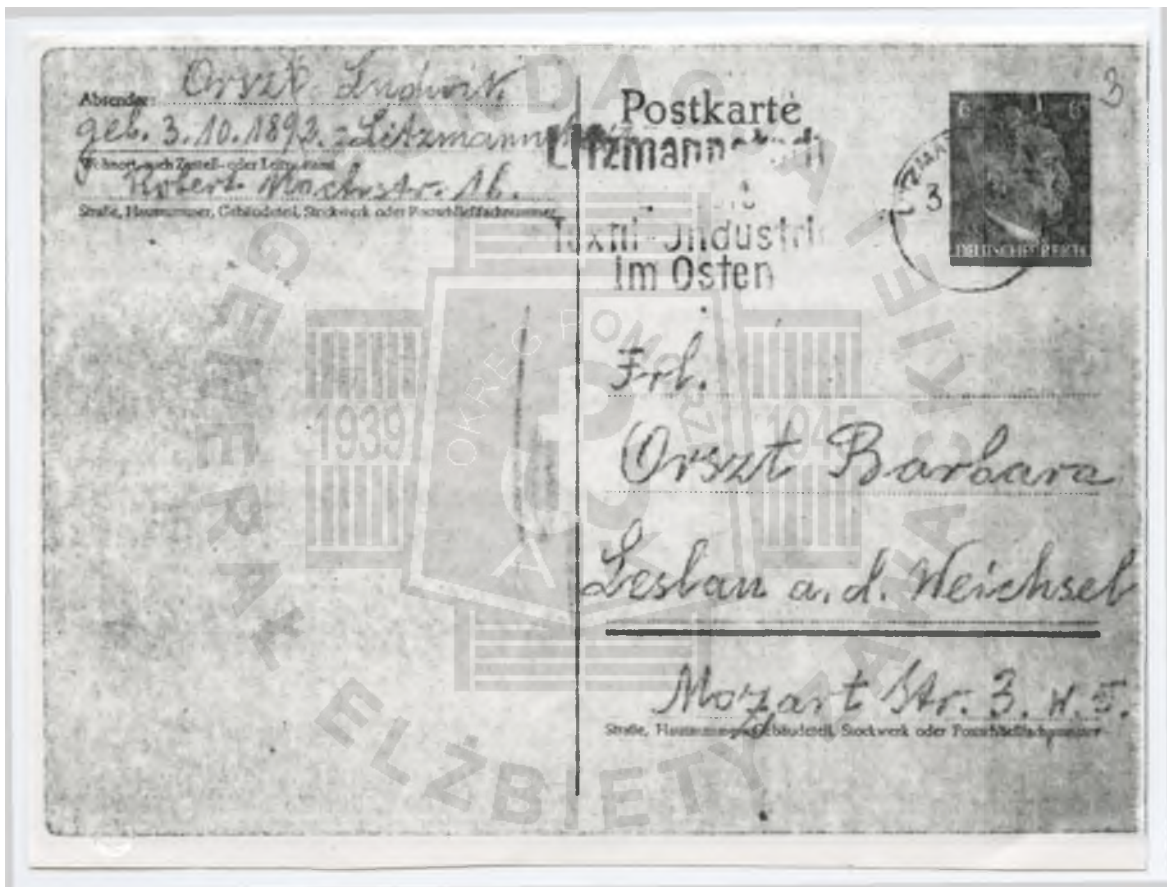 Absender: Orszt Ludwik
geb. 3.10.1892. Litzmannstadt
Wohnort, auch Zustell- oder Leitpostamt
Robert Mochstr. 16.
Straße, Hausnummer, Gebäudeteil, Stockwerk oder Postschließfachnummer
Postkarte
Litzmannstadt
Textil-Industrie
im Osten
3
6 6
DEUTSCHES REICH
3
Frl.
Orszt Barbara
Leslau a.d. Weichsel
Mozart Str. 3. W. 5.
Straße, Hausnummer, Gebäudeteil, Stockwerk oder Postschließfachnummer
FUNDACJA
GENERAŁ
ELŻBIETY
ZAWACKIEJ
OKRĘG POMORZE
1939
1945
AK